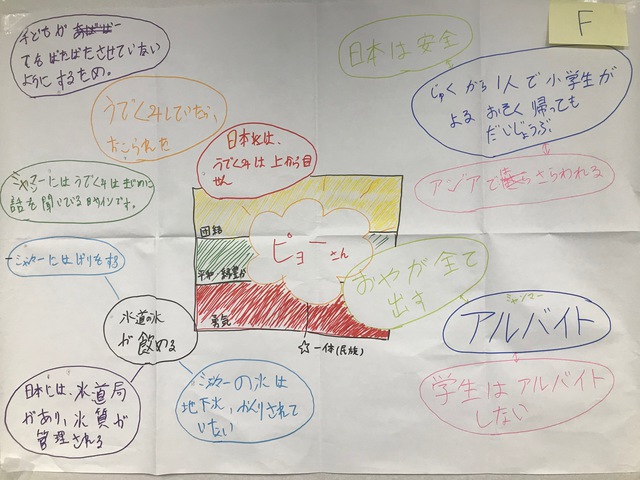 F
子どもが
てもばたばたさせていない
ようにするため。
日本は安全
じゅくから1人で小学生が
よるおそく帰っても
だいじょうぶ
アジアで さらわれる
うでくみしていたら、
おこられた
日本では、
うでくみは上から目
せん
ミャンマーにはうでくみはまじめに
話を聞いているサインです。
団結
ピョー
さん
平和
勇気
☆一体(民族)
おやが全て
出す
ミャンマー
アルバイト
学生はアルバイト
しない
水道の水
が飲める
日本には、水道局
があり、水質が
管理される
ミャンマーの水は
地下水、かんりされて
いない